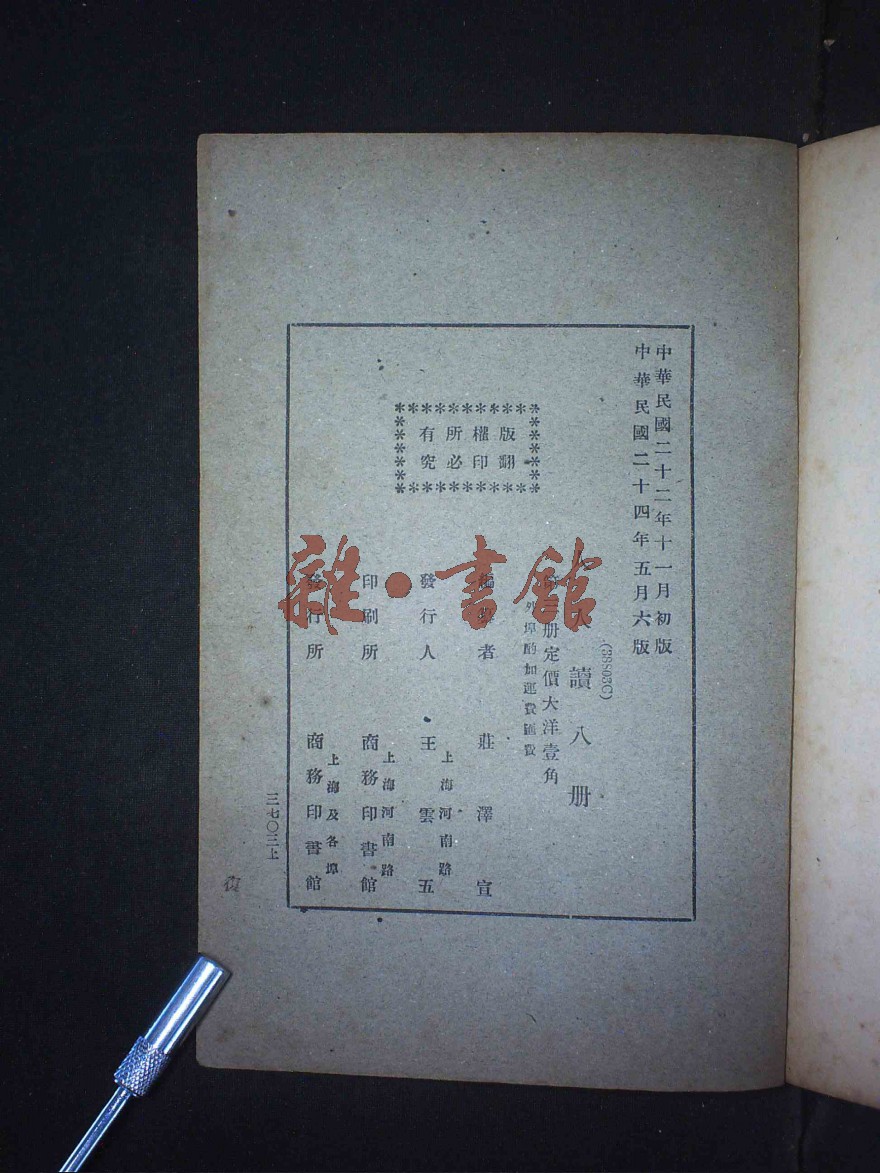 中華民國二十二年十一月初版
中華民國二十四年五月六版
(38803G)
人人讀八册
第三册定價大洋壹角
外埠酌加運費匯費
版權所有
翻印必究
編纂者 莊澤宣
發行人 上海河南路 王雲五
印刷所 上海河南路 商務印書館
發行所 上海及各埠 商務印書館
三七〇三上
雜·書館